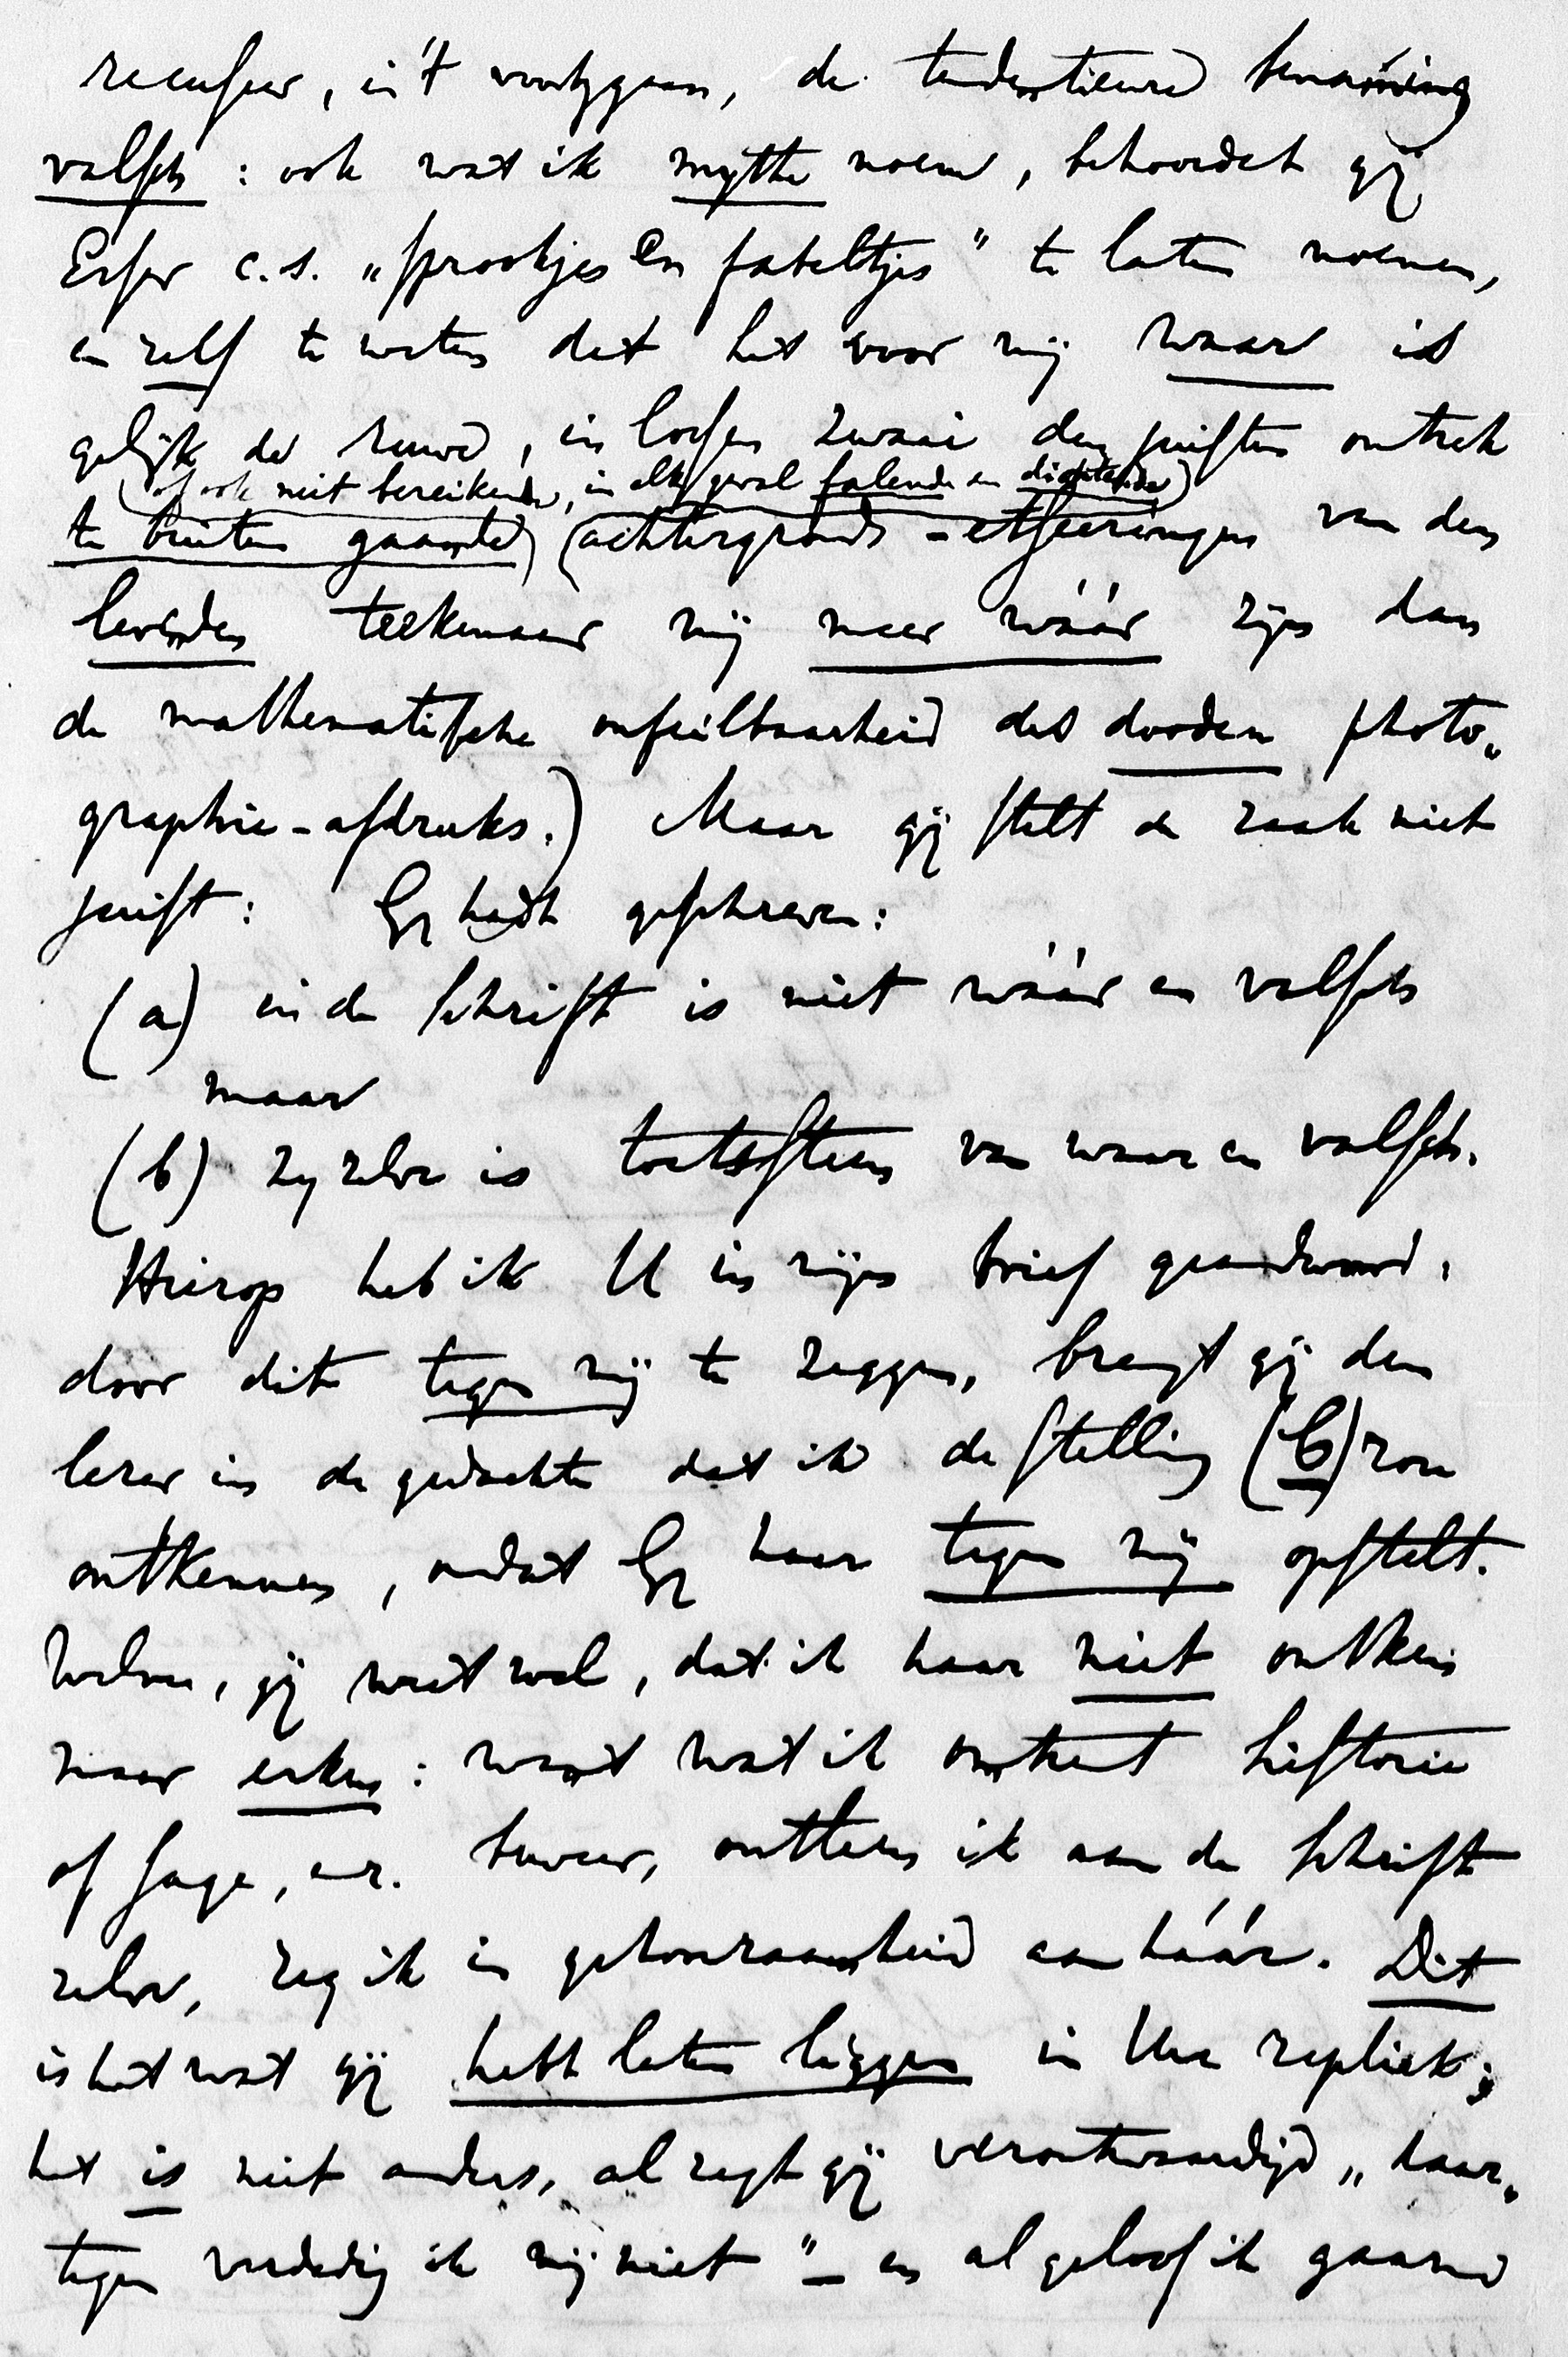 recuseer, in 't voorbijgaan, de tendentieuze benaming
valsch : ook wat ik mythe noem, behoordet gij
Esser c.s. „sprookjes en fabeltjes" te laten noemen,
en zelf te weten dat het voor mij waar is
gelijk de ruwe, in lossen zwaai den juisten omtrek
(of ook niet bereikende, in elk geval falende en dichtende)
te buiten gaande) (achtergronds - etseeringen van den
levenden teekenaar mij meer wáár zijn dan
de mathematische onfeilbaarheid des dooden photo„
graphie-afdruks.) Maar gij stelt de zaak niet
juist: Gij hadt geschreven:
(a) in de Schrift is niet wáár en valsch
maar
(b) zij zelve is toetssteen van waar en valsch.
Hierop heb ik U in mijn brief geantwoord:
door dit tegen mij te zeggen, brengt gij den
lezer in de gedachte dat ik de stelling (b) zou
ontkennen, omdat Gij haar tegen mij opstelt.
Welnu, gij weet wel, dat ik haar niet ontken
maar erken : want wat ik omtrent historie
of sage, enz. beweer, ontleen ik aan de Schrift
zelve, zeg ik in gehoorzaamheid aan háár. Dit
is het wat gij hebt laten liggen in Uw repliek;
het is niet anders, al zegt gij verontwaardigd „daar„
tegen verdedig ik mij niet" – en al geloof ik gaarne